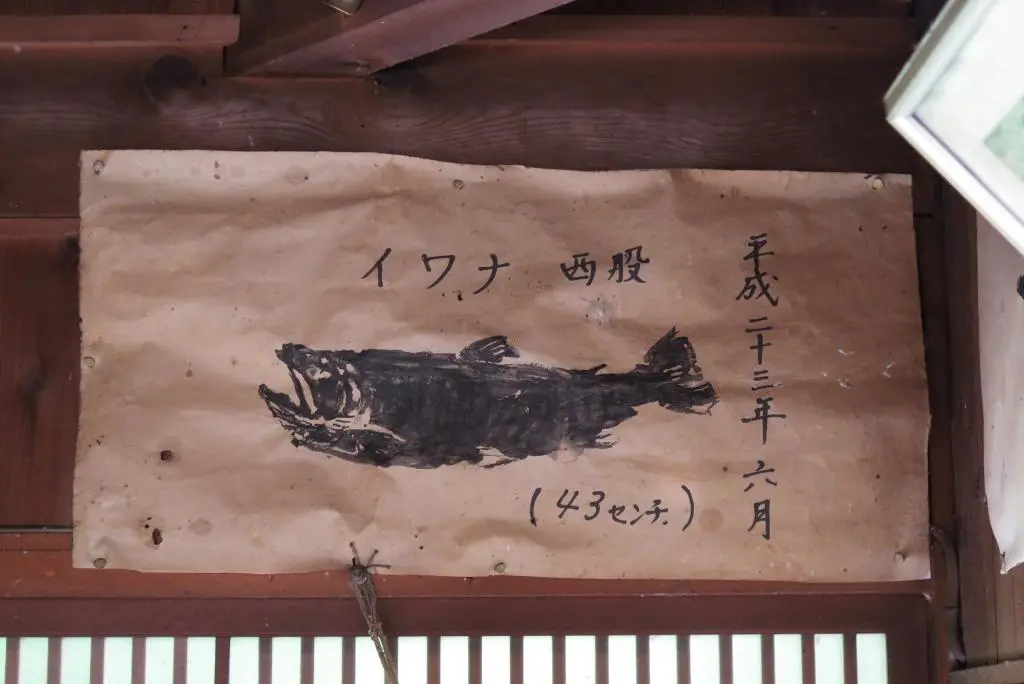 イワナ 西股
平成二十三年 六月
(43センチ)